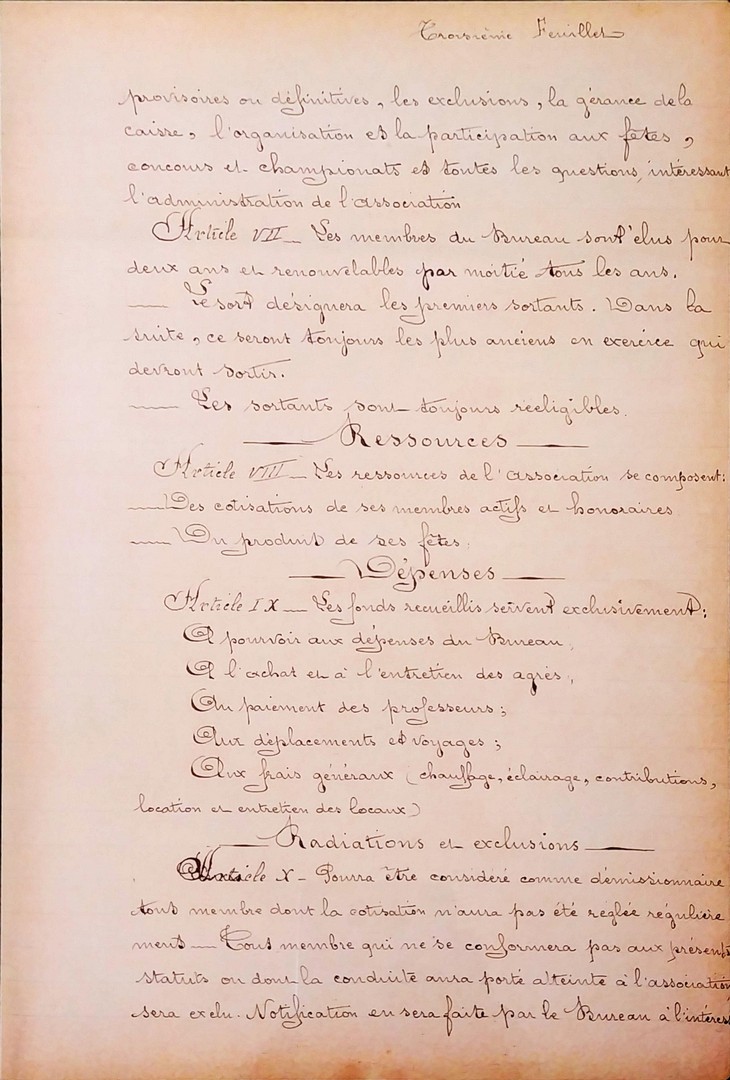 Troisième Feuillet
provisoires ou définitives, les exclusions, la gérance de la
caisse, l'organisation et la participation aux fêtes,
concours et championats et toutes les questions, intéressant
l'administration de l'association
Article VII — Les membres du Bureau sont élus pour
deux ans et renouvelables par moitié tous les ans.
— Le sort désignera les premiers sortants. Dans la
suite, ce seront toujours les plus anciens en exercice qui
devront sortir.
— Les sortants sont toujours rééligibles.
— Ressources —
Article VIII — Les ressources de l'association se composent:
— Des cotisations de ses membres actifs et honoraires
— Du produit de ses fêtes.
— Dépenses —
Article IX — Les fonds recueillis servent exclusivement:
A pourvoir aux dépenses du Bureau;
A l'achat et à l'entretien des agrès;
Au paiement des professeurs;
Aux déplacements et voyages;
Aux frais généraux (chauffage, éclairage, contributions,
location et entretien des locaux)
— Radiations et exclusions —
Article X - Pourra être considéré comme démissionnaire
tout membre dont la cotisation n'aura pas été réglée régulière
ment — Tout membre qui ne se conformera pas aux présents
statuts ou dont la conduite aura porté atteinte à l'association
sera exclu. Notification en sera faite par le Bureau à l'intéress